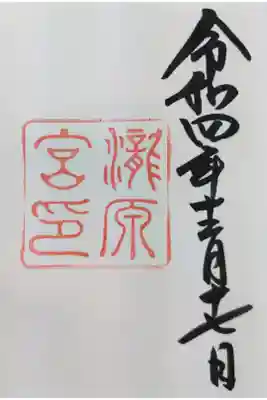 令和四年十二月十七日
瀧原
宮印